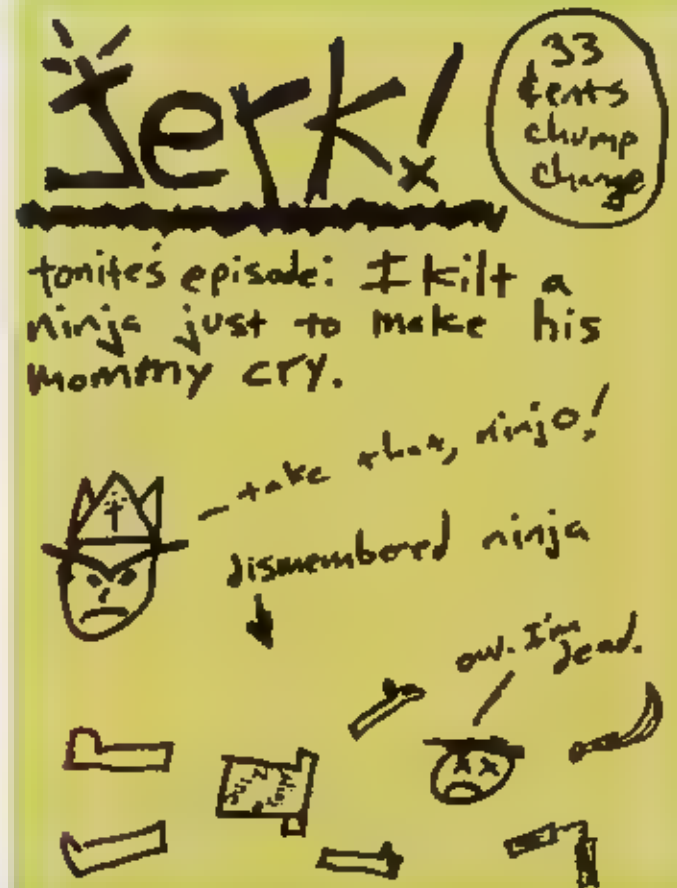 Jerk!
33
cents
chump
change
tonite's episode: I kilt a
ninja just to make his
mommy cry.
take that, ninjo!
dismembered ninja
ow. I'm
dead.